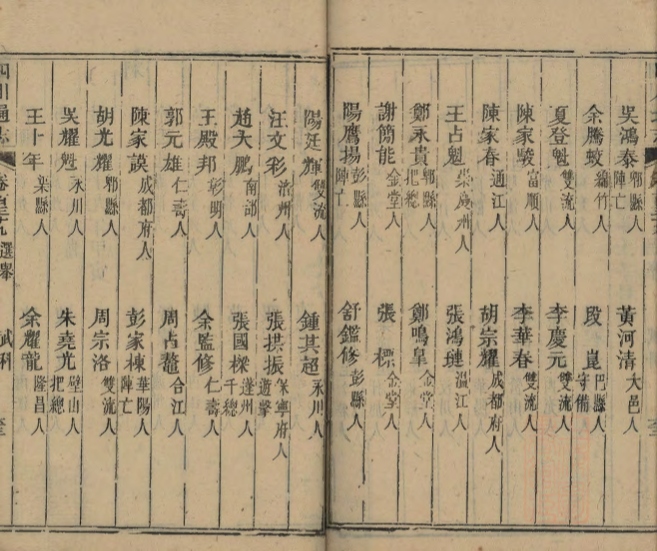 吳鴻泰 郫縣人 陣亡 黃河清 大邑人
余騰蛟 綿竹人 段崑 巴縣人 守備
夏登魁 雙流人 李慶元 雙流人
陳家駿 富順人 李華春 雙流人
陳家春 通江人 胡宗耀 成都府人
王占魁 崇慶州人 張鴻璉 溫江人
鄭永貴 郫縣人 把總 鄭鳴皋 金堂人
謝簡能 金堂人 張標 金堂人
陽鷹揚 彭縣人 陣亡 舒鑑修 彭縣人
陽廷輝 雙流人 鍾其超 永川人
汪文彩 涪州人 張拱振 保寧府人 遊擊
趙大鵬 南部人 張國樑 蓬州人 千總
王殿邦 彰明人 余監修 仁壽人
郭元雄 仁壽人 周占鰲 合江人
陳家謨 成都府人 彭家棟 華陽人 陣亡
胡光耀 郫縣人 周宗洛 雙流人
吳耀魁 永川人 朱堯光 璧山人 把總
王十年 縣人 余耀龍 隆昌人
四川通志 卷 選舉 武科